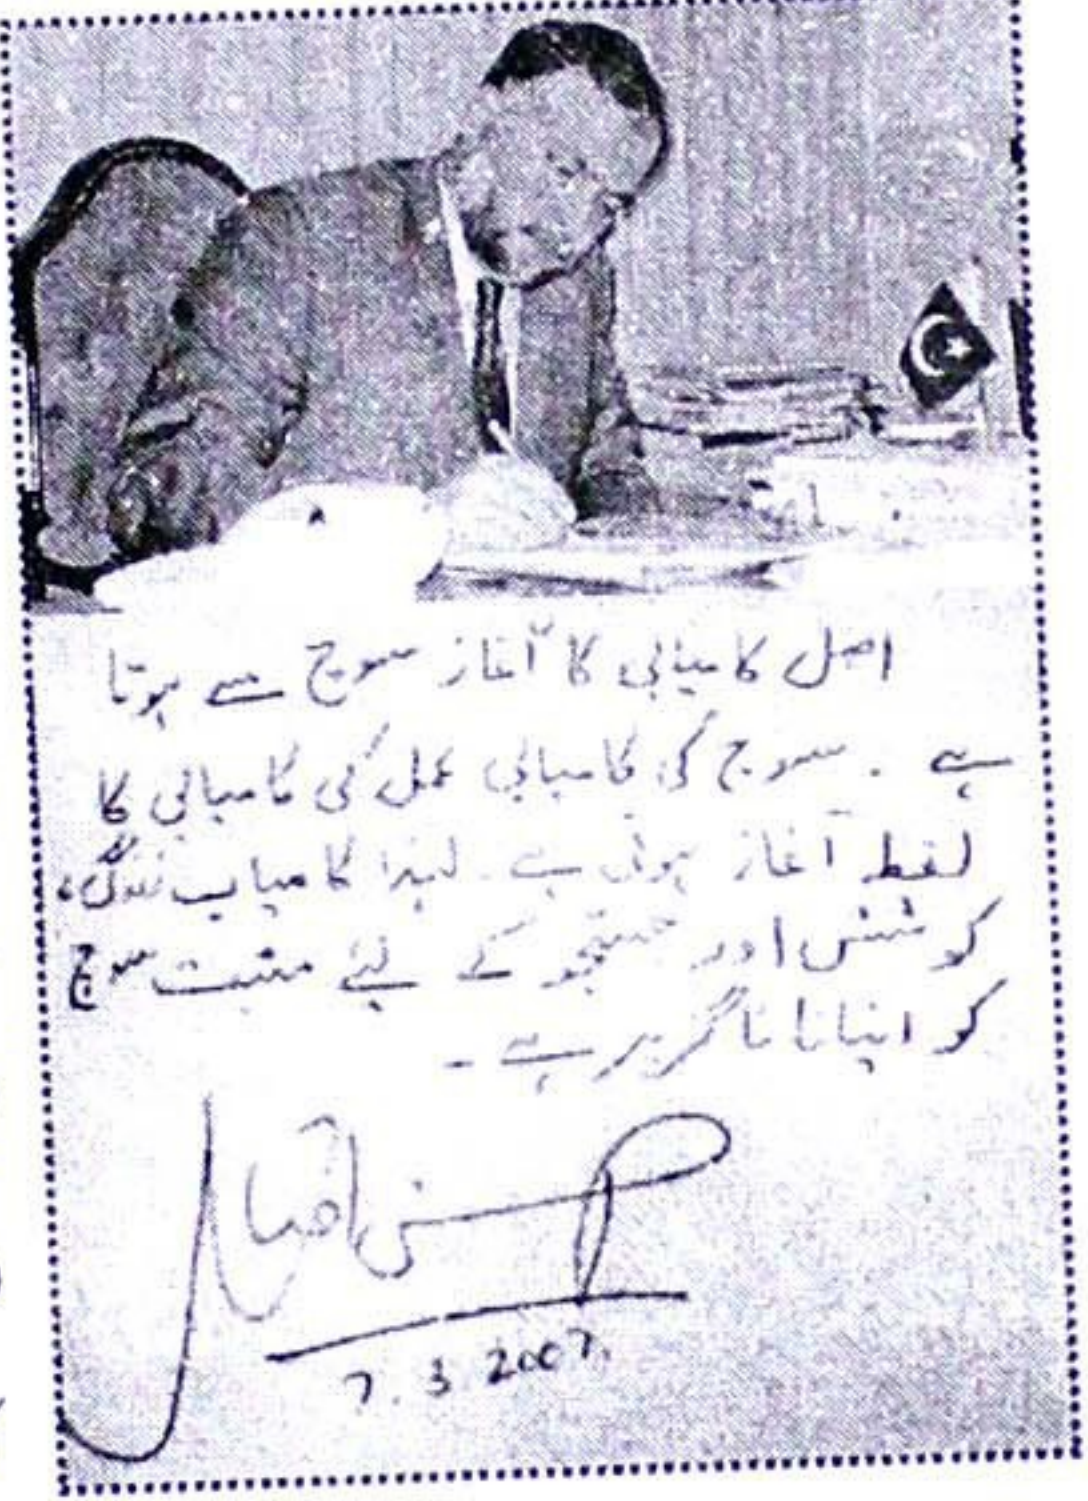 اصل کامیابی کا آغاز سوچ سے ہوتا
ہے ۔ سوچ کی کامیابی عمل کی کامیابی کا
نقطہ آغاز ہوتی ہے ۔ لہٰذا کامیاب زندگی،
کوشش اور جستجو کے لیئے مثبت سوچ
کو اپنانا ناگزیر ہے ۔
7.3.2007.